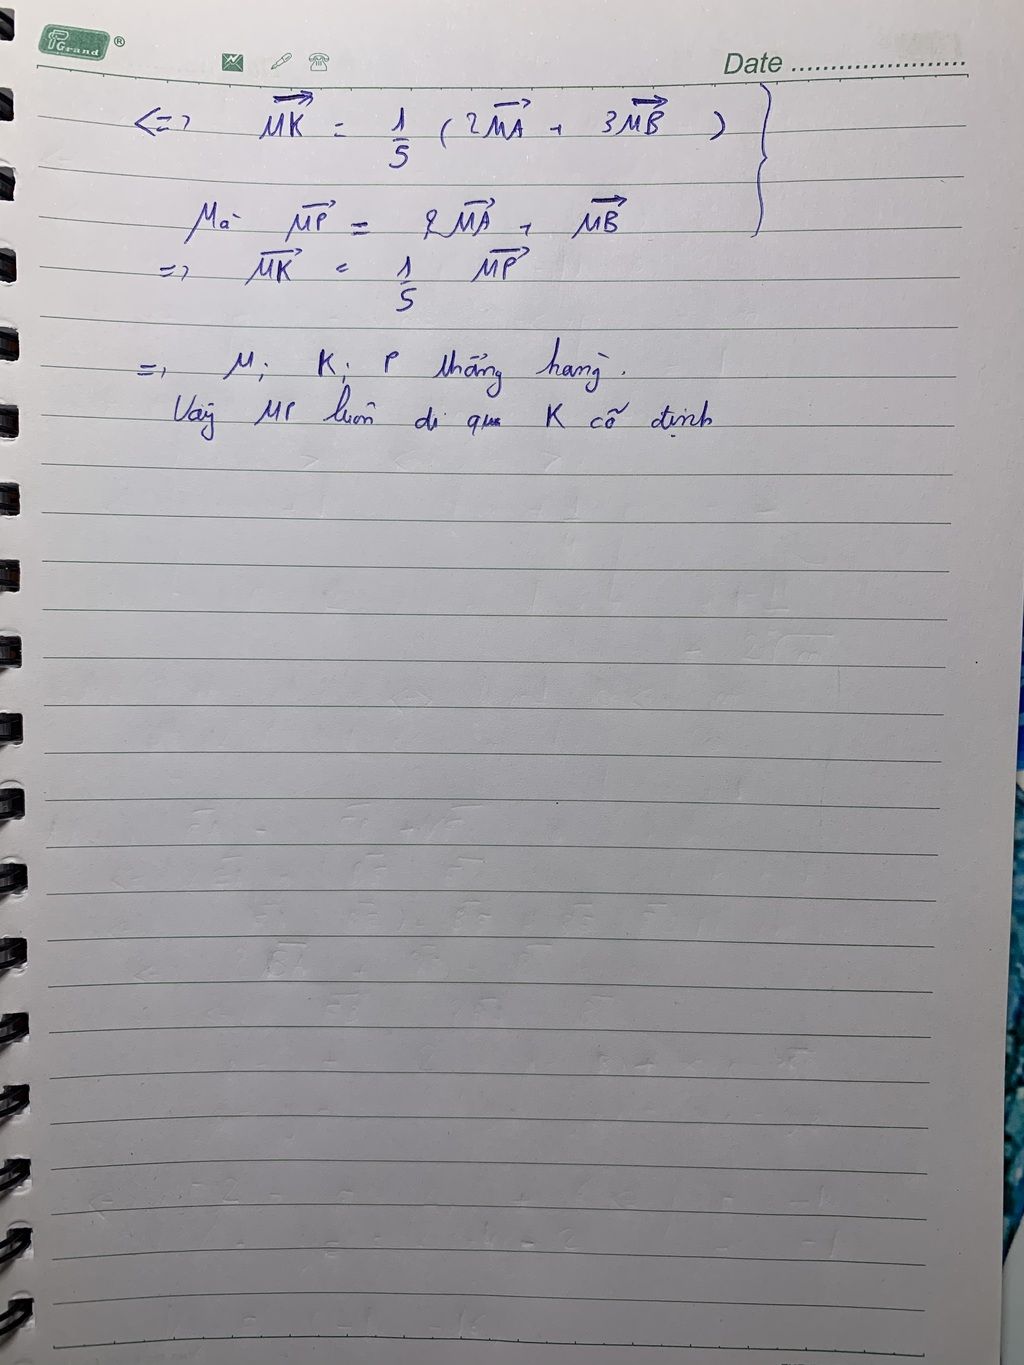 PGrand ®
Date ......................
<=> MK = 1/5 ( 2MA + 3MB )
Mà MP = 2MA + MB
=> MK = 1/5 MP
=> M; K; P thẳng hàng.
Vậy MP luôn đi qua K cố định